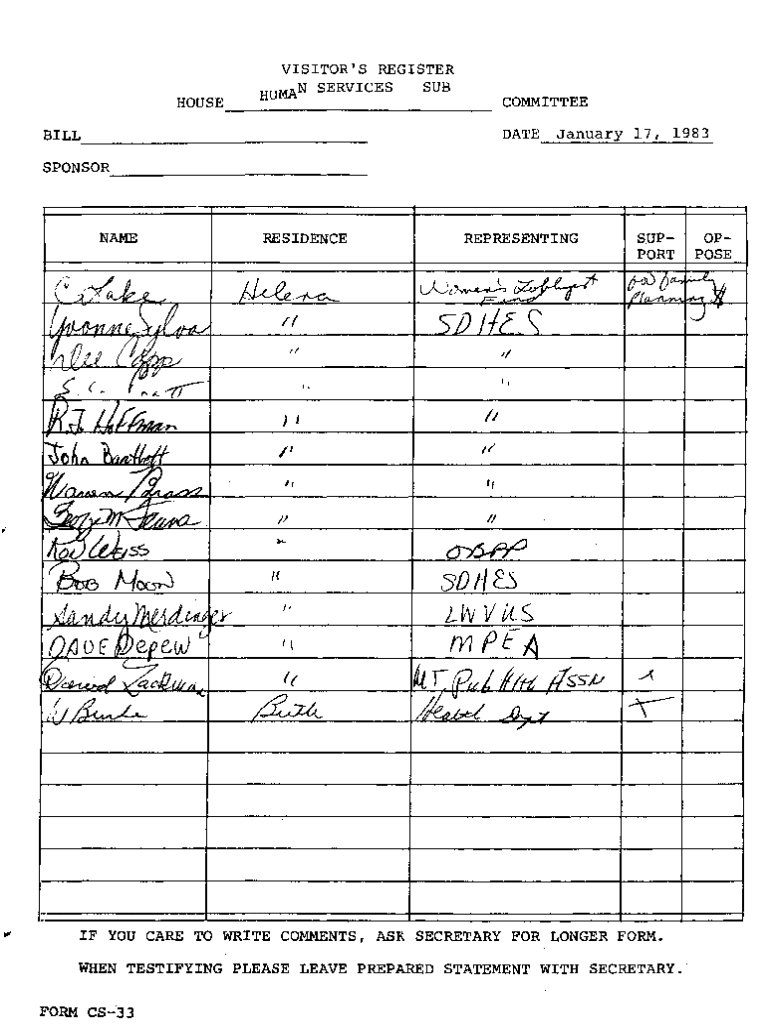 VISITOR'S REGISTER
HOUSE HUMAN SERVICES SUB COMMITTEE
BILL DATE January 17, 1983
SPONSOR
NAME RESIDENCE REPRESENTING SUP-PORT OP-POSE
C Lake Helena Women's Lobbyist Fund for family planning $
Yvonne Sylva " SDHES
Dee Capp " "
S.C. Pratt " "
R.J. Hoffman " "
John Bartlett " "
Warren " "
George M " "
Ron Weiss " OBPP
Bob Moon " SDHES
Sandy Merdinger " LWVUS
DAVE Depew " MPEA
David Lackman " MT. Pub Hlth ASSN x
W Burke Butte Health Dept
IF YOU CARE TO WRITE COMMENTS, ASK SECRETARY FOR LONGER FORM.
WHEN TESTIFYING PLEASE LEAVE PREPARED STATEMENT WITH SECRETARY.
FORM CS-33